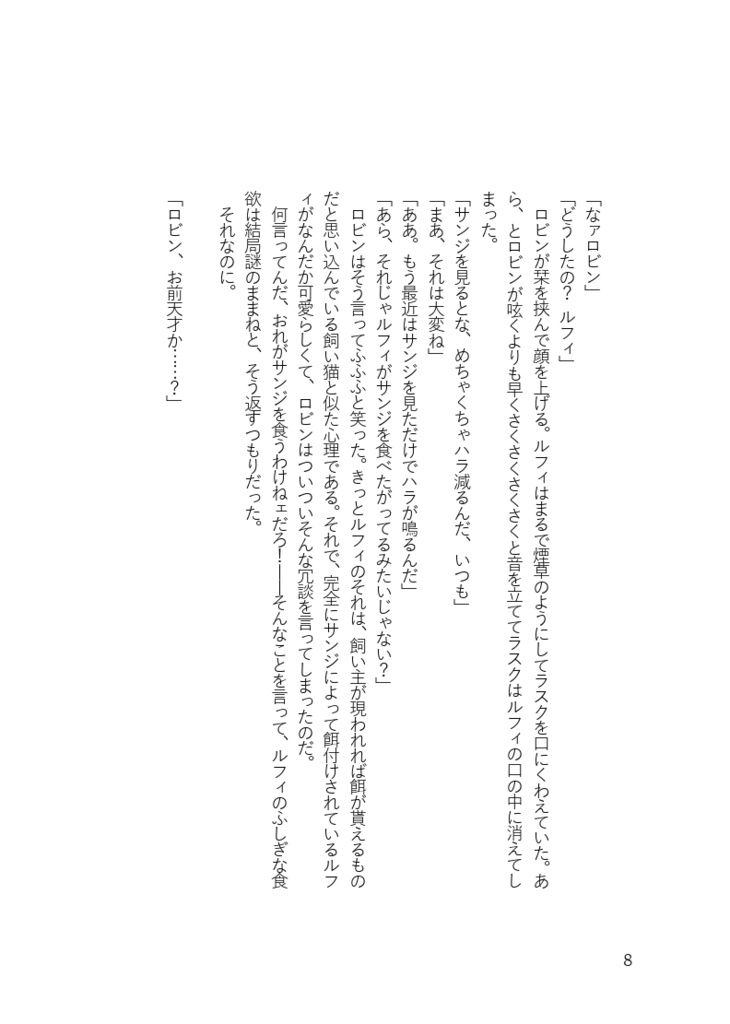 「なァロビン」
「どうしたの？　ルフィ」
　ロビンが栞を挟んで顔を上げる。ルフィはまるで煙草のようにしてラスクを口にくわえていた。あ
ら、とロビンが呟くよりも早くさくさくさくさくと音を立ててラスクはルフィの口の中に消えてし
まった。
「サンジを見るとな、めちゃくちゃハラ減るんだ、いつも」
「まあ、それは大変ね」
「ああ。もう最近はサンジを見ただけでハラが鳴るんだ」
「あら、それじゃルフィがサンジを食べたがってるみたいじゃない？」
　ロビンはそう言ってふふふと笑った。きっとルフィのそれは、飼い主が現われれば餌が貰えるもの
だと思い込んでいる飼い猫と似た心理である。それで、完全にサンジによって餌付けされているルフ
ィがなんだか可愛らしくて、ロビンはついついそんな冗談を言ってしまったのだ。
　何言ってんだ、おれがサンジを食うわけねェだろ！――そんなことを言って、ルフィのふしぎな食
欲は結局謎のままねと、そう返すつもりだった。
　それなのに。
「ロビン、お前天才か……？」
8